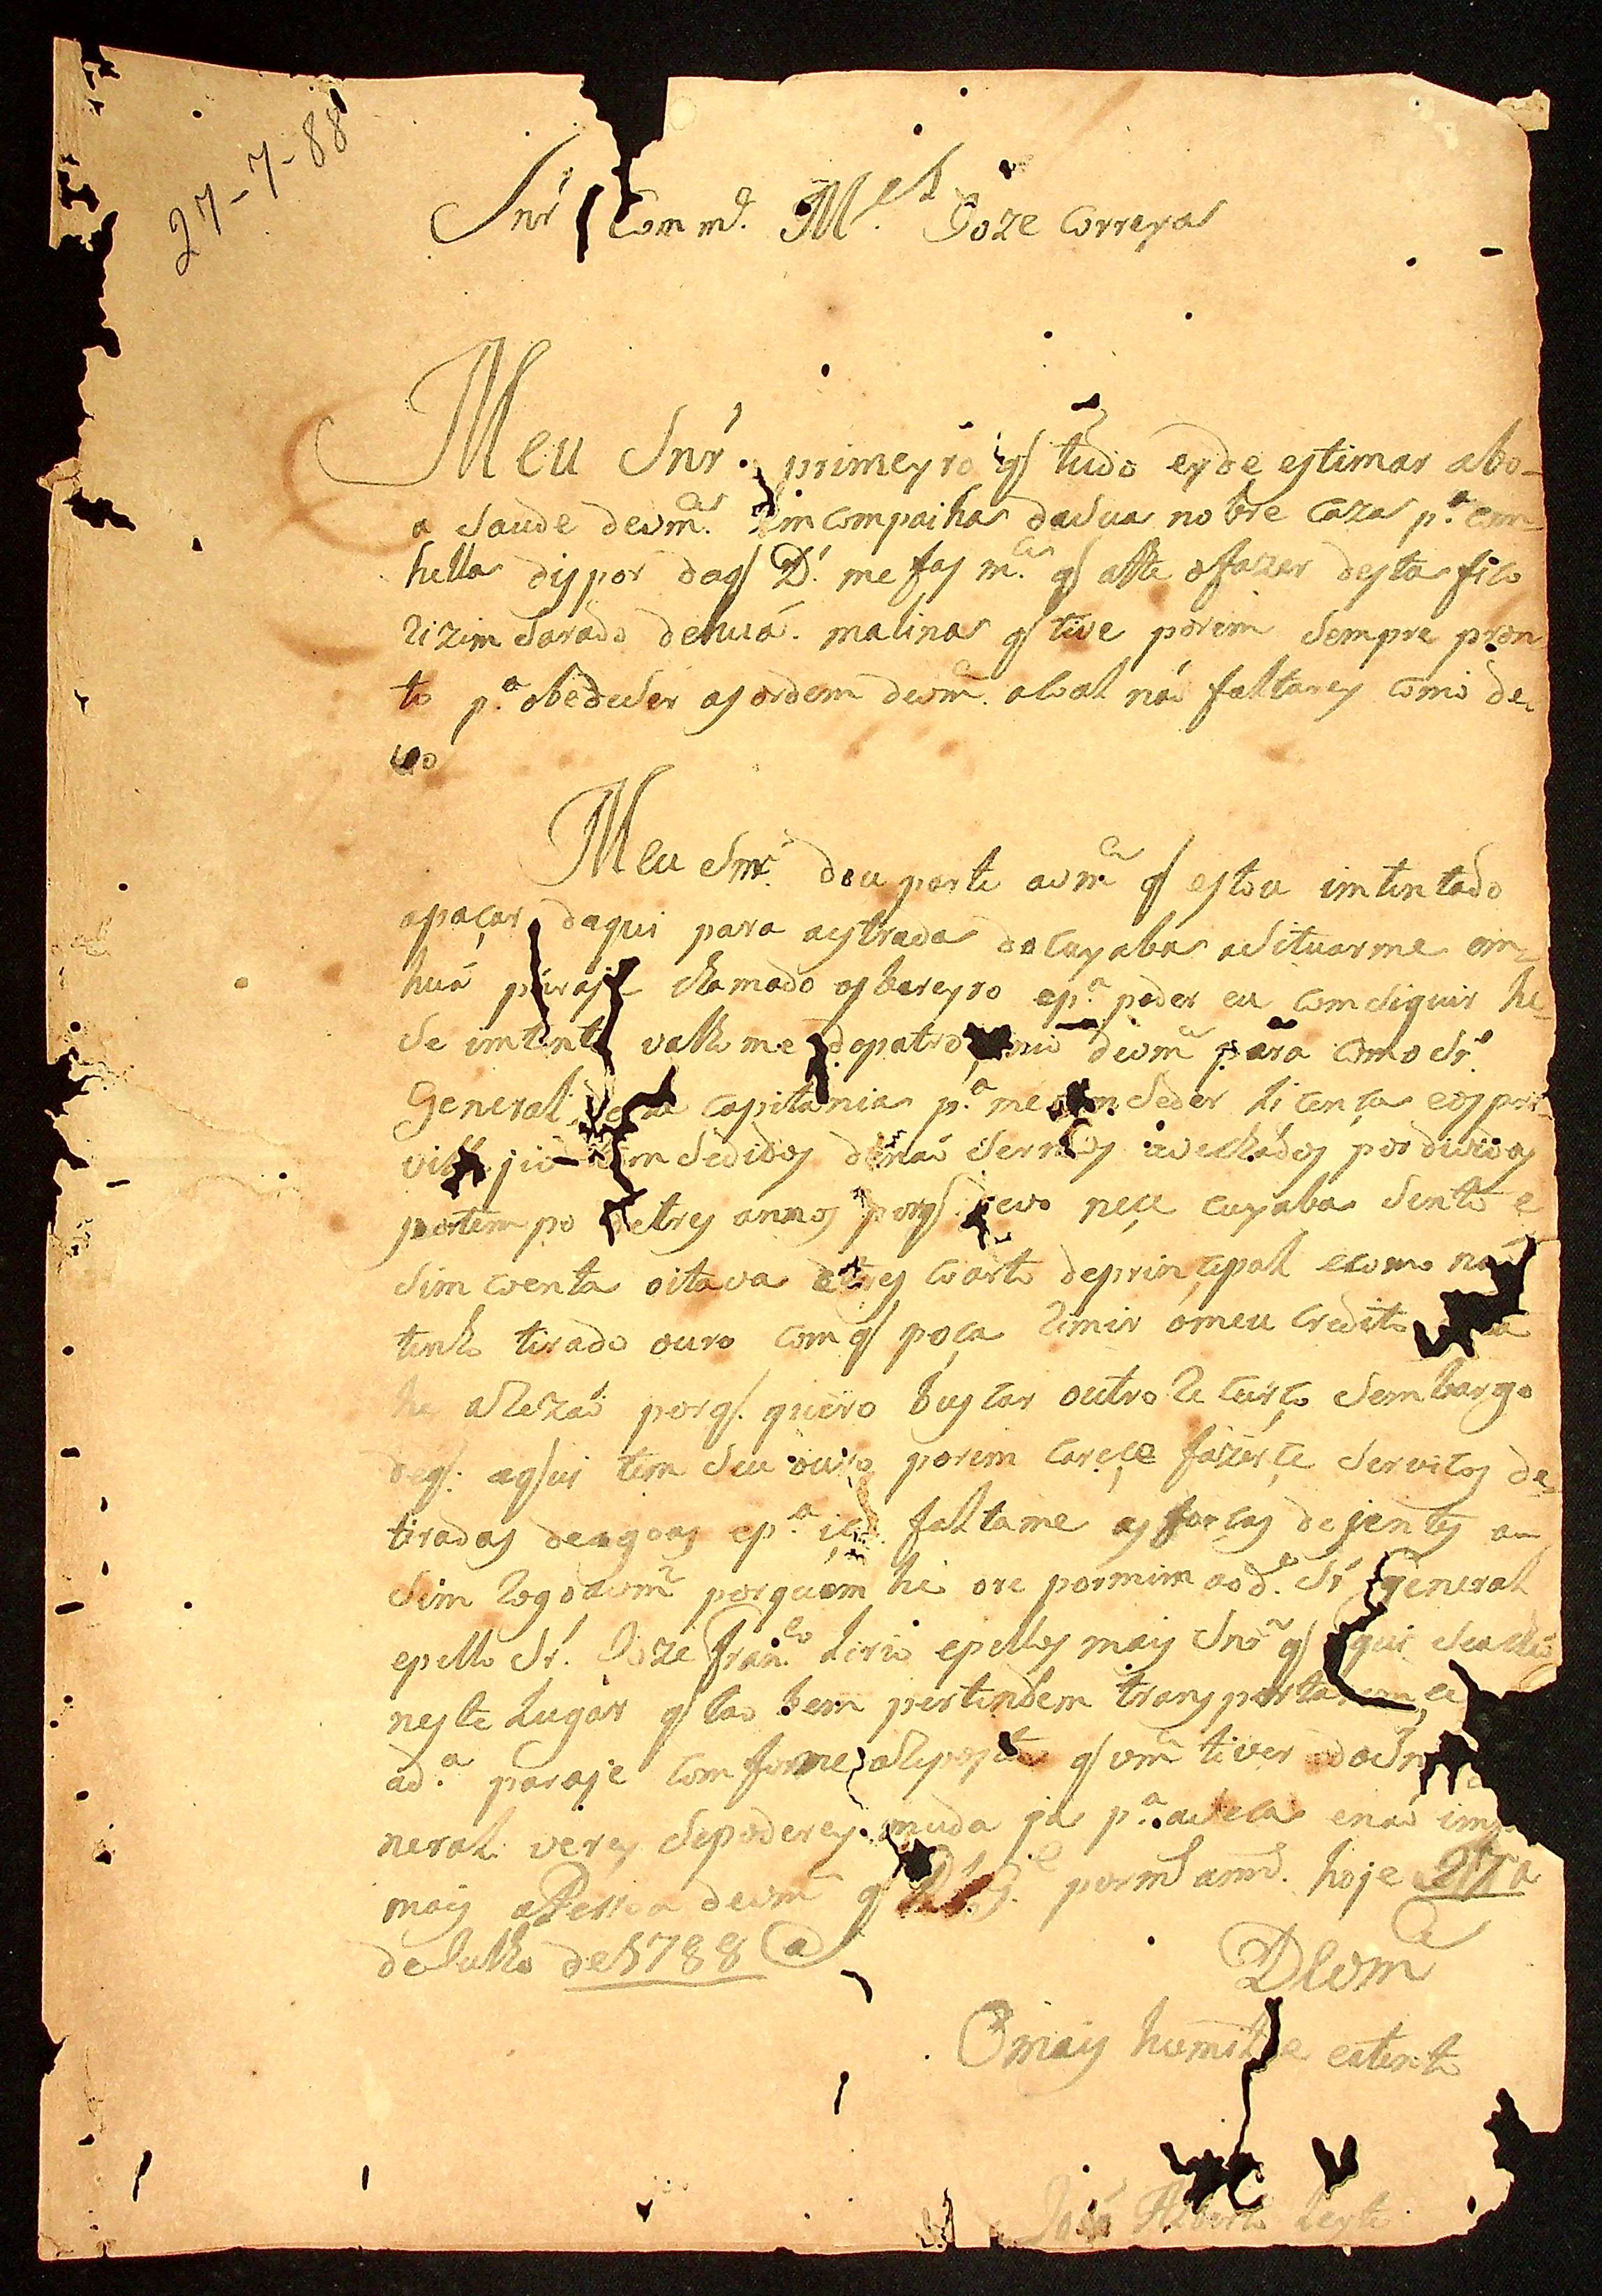 27-7-88
Snr̃ Comm.e M.el Joze Correya
Meu Snr̃. primeyro q̃ tudo eyde estimar abo-
a Saude devm.ce em compaiha dasua nobre caza p.a com
hella dispor daq̃ D.s me fas m.ce q̃ athe ofazer desta fico
rizim Sarado dehuá malina q̃ tive porem Sempre pron
to p.a obedeser as ordem devm.ce acoal não faltarey como de
vo
Meu Snr̃. dou parte avm.ce q̃ estou imtentado
apaçar daqui para aestrada do Cuyaba asituarme em
huá paraje chamado osbareyro ep.a poder eu comsiguir he
se imtento valhome dopatrosinio devm.ce para como Sr.
General desta capitania p.a me comseder licença eos pri
vilejio comsedidos de não Sermos avechados por dividas
portempo detres annos porq̃ devo nece cuyaba Sento e
simcoenta oitava etres coarto deprincipal ecomo não
tenho tirado ouro com q̃ poça remir omeu credito
he arezão porq̃. quero buscar outro recurço Sembargo
deq̃. aqui tem Seu ouro porem carece fazerce Servicos de
tiradas deagoas ep.a iço faltame as forcas de jentes a
sim rogoavm.ce porquem he ore pormim aod.o Sr General
epello Sr. Joze Fran.co Lirio epellos mais Snr.es q̃ aqui Seacha
neste Lugar q̃ tão bem pertendem transportaremce
ad.a paraje comforme areposta q̃ vm.ce tiver do Snr̃
neral verey Sepoderey muda ja p.a aseca enão im
mais aPessoa devm.ce q̃ D.s G.e porm.s ann.s hoje 27 a
deJulho de 1788 a
Devm.ce
Omais humilde eatento
José Alberto Leyte